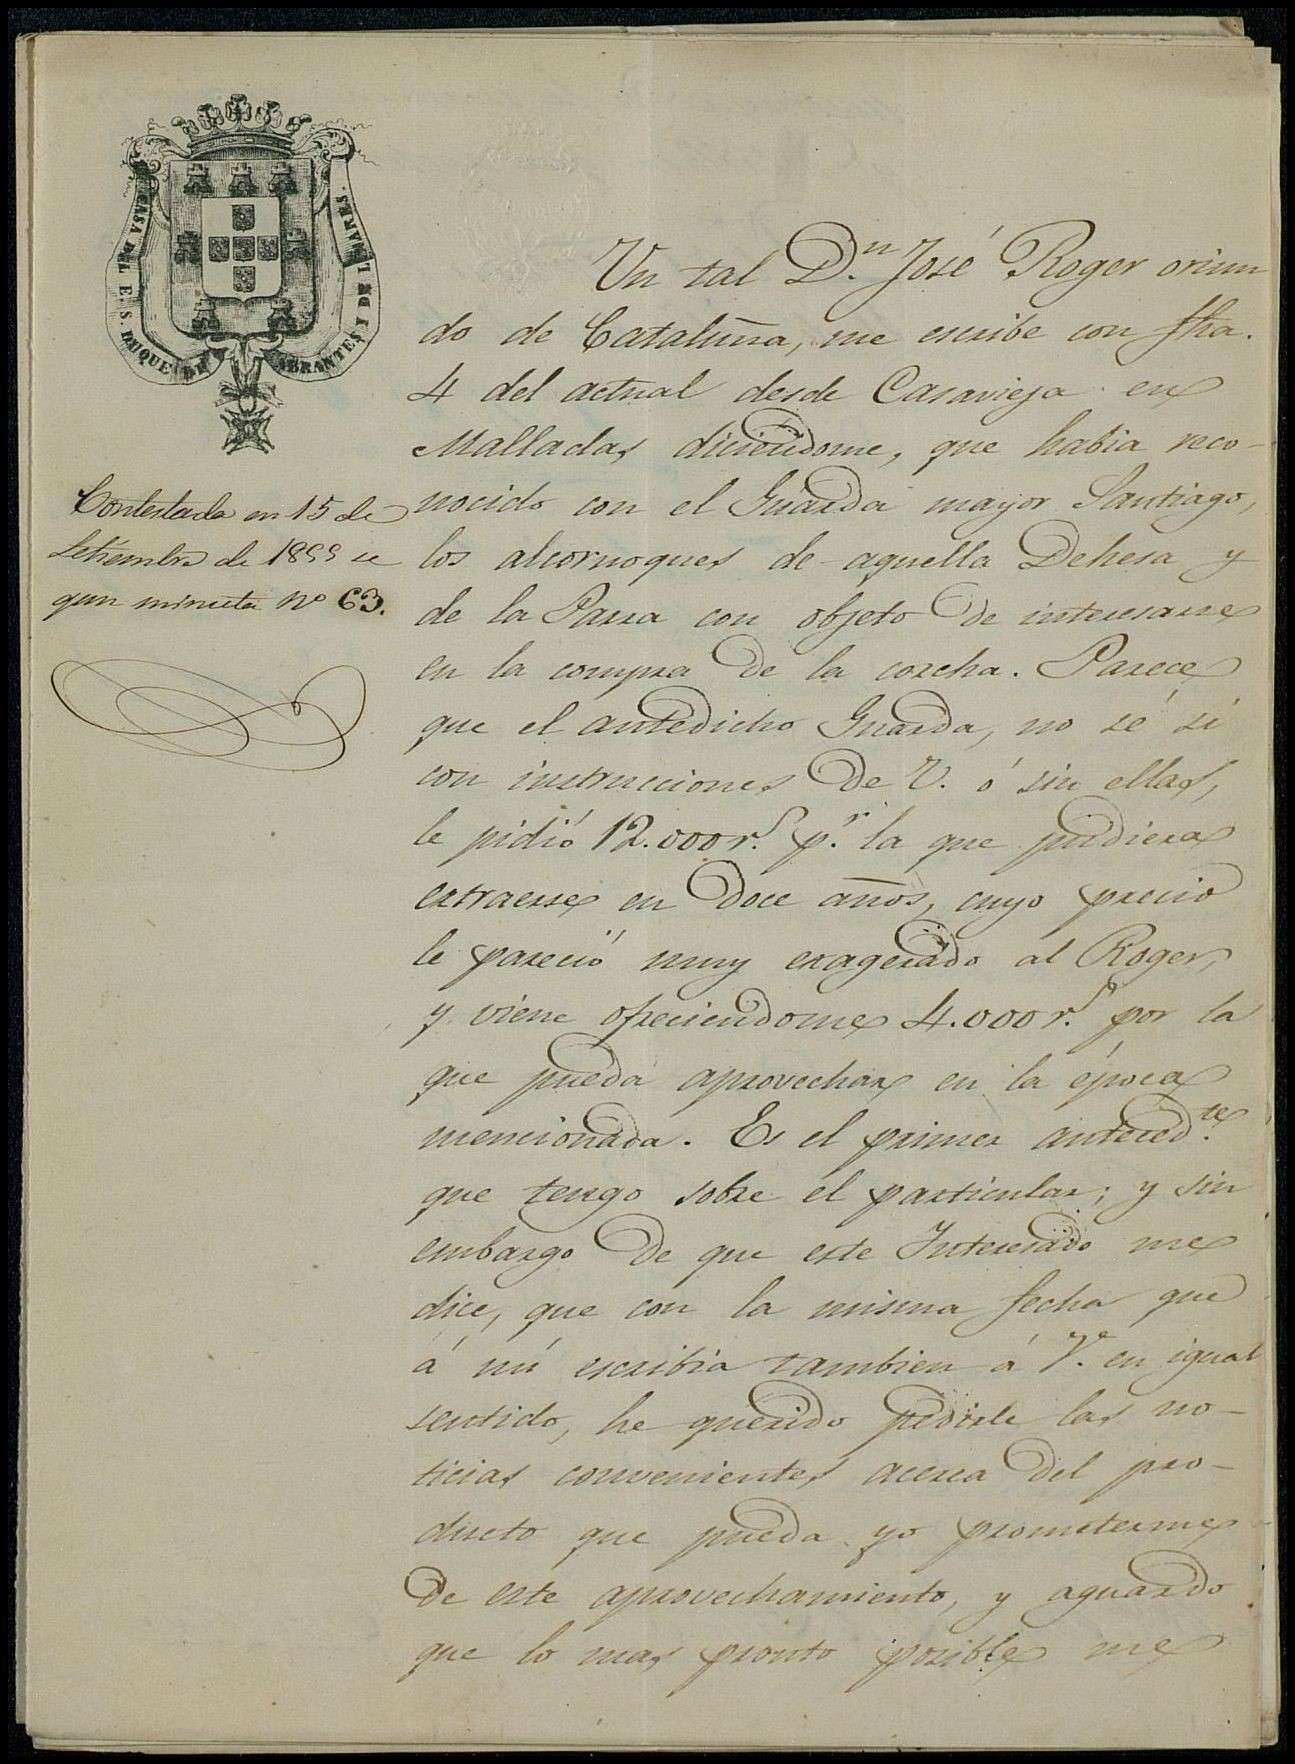 CASA DEL E. S. DUQUE DE ABRANTES Y DE LINARES.
Contestada en 15 de
Setiembre de 1855 se
gun minuta nº 63.
Un tal D.n José Roger oriun
do de Cataluña, me escribe con fha.
4 del actual desde Casavieja en
Malladas diciendome, que habia reco-
nocido con el Guarda mayor Santiago,
los alcornoques de aquella Dehesa y
de la Parra con objeto de interesarse
en la compra de la corcha. Parece
que el antedicho Guarda, no sé si
con instrucciones de V. ó sin ellas,
le pidió 12.000 r.s p.r la que pudiera
extraerse en doce años, cuyo precio
le pareció muy exagerado al Roger,
y viene ofreciendome 4.000 r.s por la
que pueda aprovechar en la época
mencionada. Es el primer anteced.te
que tengo sobre el particular; y sin
embargo de que este Interesado me
dice, que con la misma fecha que
á mi escribia tambien á V. en igual
sentido, he querido pedirle las no-
ticias convenientes acerca del pro-
ducto que pueda yo prometerme
de este aprovechamiento, y aguardo
que lo mas pronto posible me